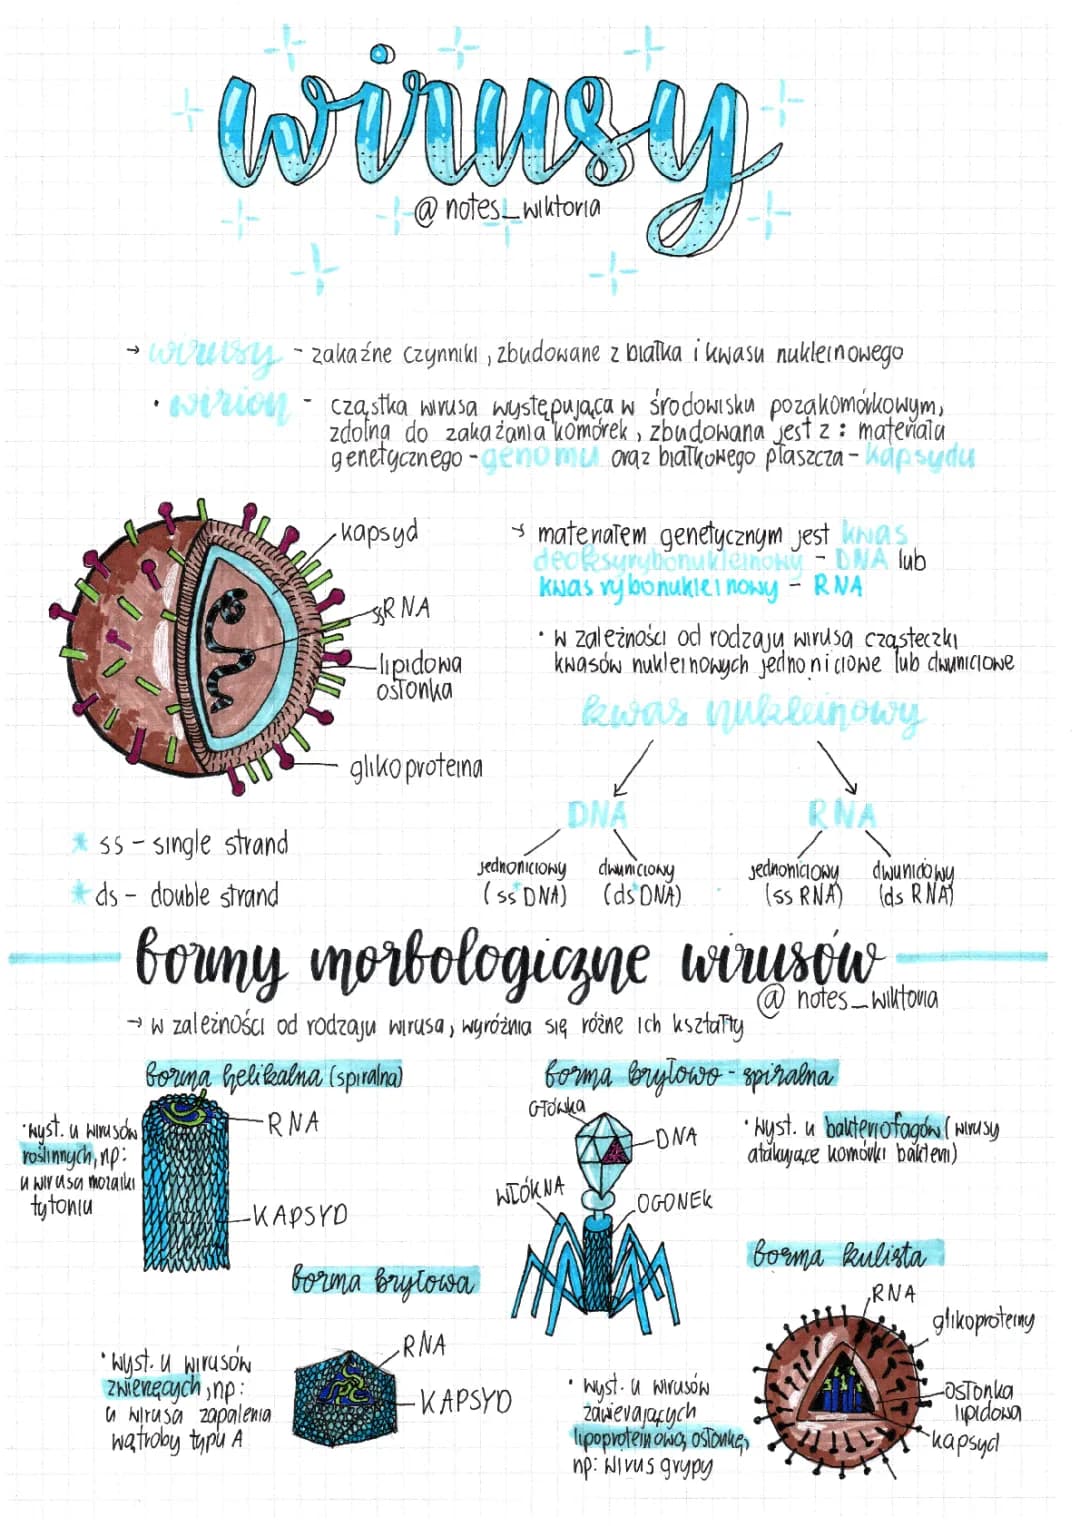 wirusy
@ notes_wiktoria
→ wirusy - zakaźne czynniki, zbudowane z białka i kwasu nukleinowego
• wirion - cząstka wirusa występująca w środowisku pozakomórkowym,
zdolna do zakażania komórek, zbudowana jest z: materiału
genetycznego - genomu oraz białkowego płaszcza - kapsydu
kapsyd
ssRNA
lipidowa
osłonka
glikoproteina
* ss - single strand
* ds - double strand
→ materiałem genetycznym jest kwas
deoksyrybonukleinowy - DNA lub
kwas rybonukleinowy - RNA
• w zależności od rodzaju wirusa cząsteczki
kwasów nukleinowych jednoniciowe lub dwuniciowe
kwas nukleinowy
DNA RNA
jednoniciowy dwuniciowy jednoniciowy dwuniciowy
(ssDNA) (dsDNA) (ssRNA) (ds RNA)
formy morfologiczne wirusów
@ notes_wiktoria
→ w zależności od rodzaju wirusa, wyróżnia się różne ich kształty
forma helikalna (spiralna)
• wyst. u wirusów
roślinnych, np:
u wirusa mozaiki
tytoniu
RNA
KAPSYD
forma bryłowo - spiralna
Główka
DNA
WŁÓKNA
OGONEK
• wyst. u bakteriofagów (wirusy
atakujące komórki bakterii)
forma bryłowa
• wyst. u wirusów
zwierzęcych, np:
u wirusa zapalenia
wątroby typu A
RNA
KAPSYD
forma kulista
• wyst. u wirusów
zawierających
lipoproteinową osłonkę,
np: wirus grypy
RNA
glikoproteiny
osłonka
lipidowa
kapsyd